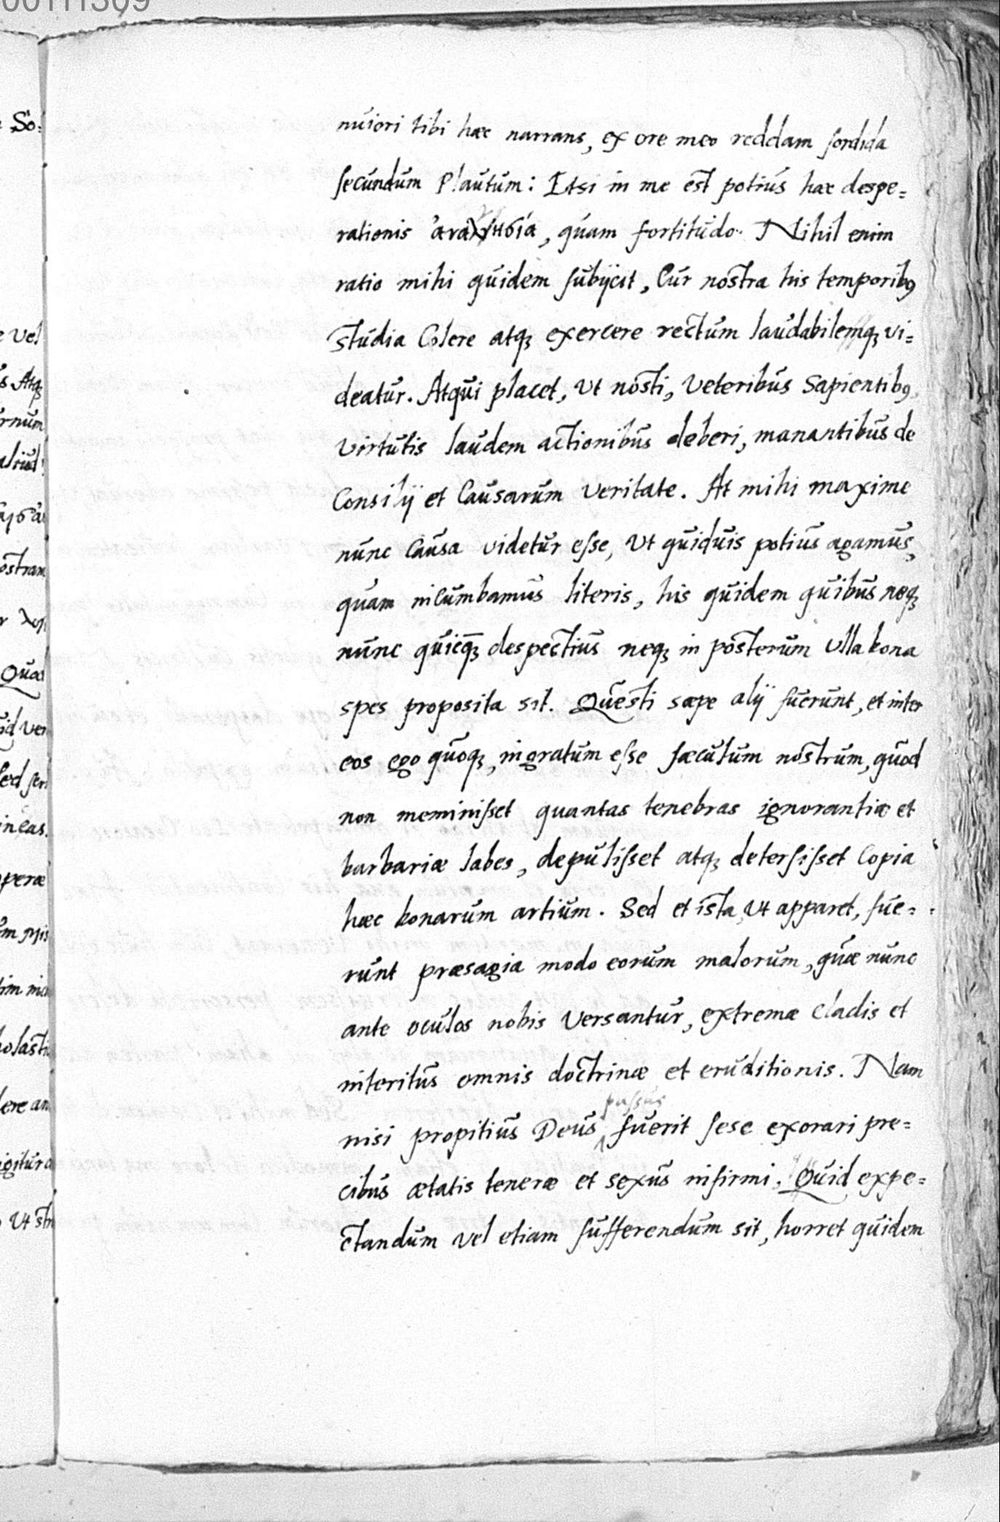 00111309
nuiori tibi hæc narrans, ex ore meo reddam sordida
secundum Plautum: Etsi in me est potius hæc despe=
rationis ἀναλγησία, quam fortitudo. Nihil enim
ratio mihi quidem subijcit, Cur nostra his temporibꝰ
studia Colere atqꝫ exercere rectum laudabilemqꝫ vi=
deatur. Atqui placet, Vt nosti, Veteribus Sapientibꝰ,
virtutis laudem actionibus deberi, manantibus de
Consilij et Causarum veritate. At mihi maxime
nunc Causa videtur esse, Vt quiduis potius agamus,
quam incumbamus literis, his quidem quibus neqꝫ
nunc quicqꝫ despectius neqꝫ in posterum Vlla bona
spes proposita sit. Questi sæpe alij fuerunt, et inter
eos ego quoqꝫ, ingratum esse sæculum nostrum, quod
non meminisset quantas tenebras ignorantiæ et
barbariæ labes, depulisset atqꝫ detersisset Copia
hæc bonarum artium. Sed et ista, Vt apparet, fue=
runt præsagia modo eorum malorum, quæ nunc
ante oculos nobis Versantur, extremæ Cladis et
interitus omnis doctrinæ et eruditionis. Nam
passus
nisi propitius Deus fuerit sese exorari pre=
cibus ætatis teneræ et sexus infirmi, Quid expe=
ctandum vel etiam sufferendum sit, horret quidem